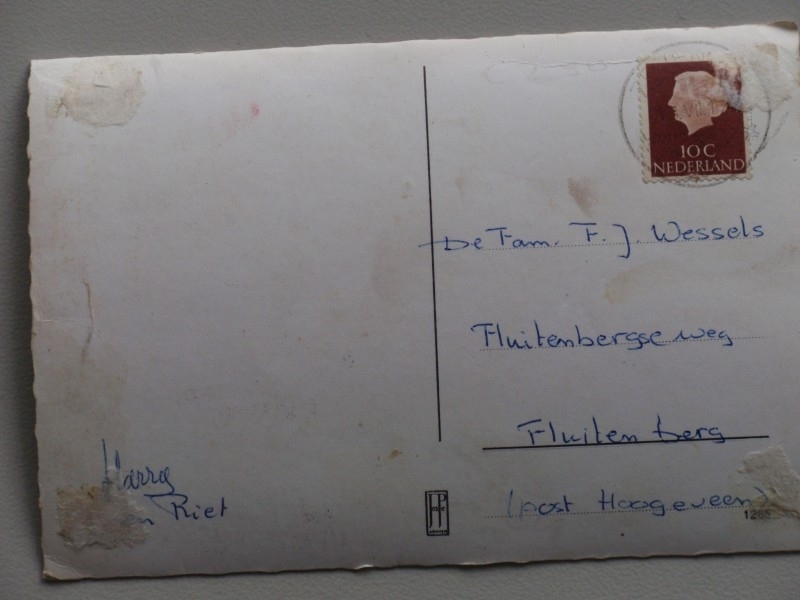 10 C
NEDERLAND
De Fam. F. J. Wessels
Fluitenbergseweg
Fluitenberg
(post Hoogeveen)
Harry
en Riet